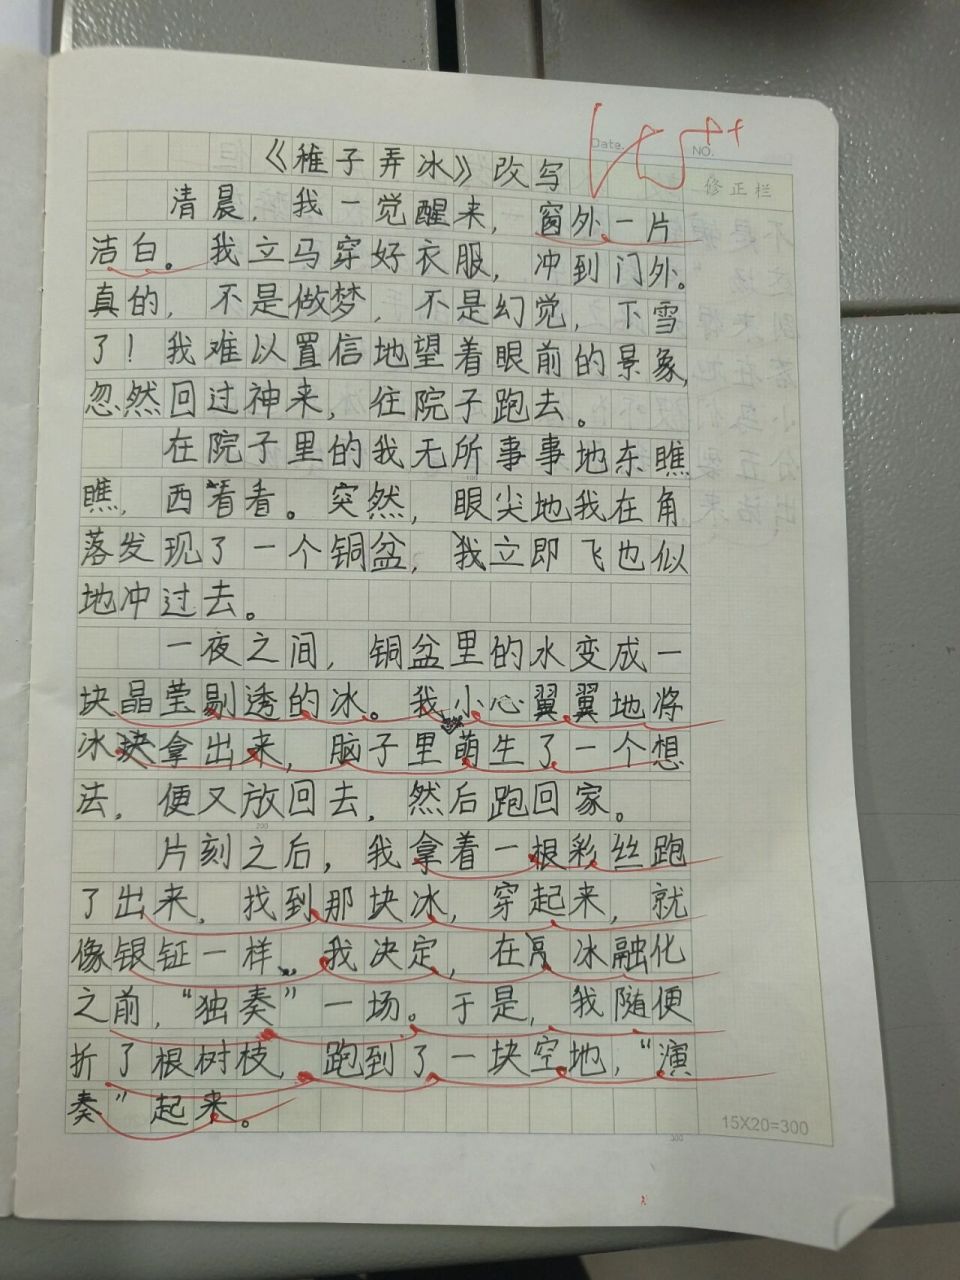 Date.
NO.
《稚子弄冰》改写
修正栏
清晨，我一觉醒来，窗外一片
洁白。我立马穿好衣服，冲到门外。
真的，不是做梦，不是幻觉，下雪
了！我难以置信地望着眼前的景象，
忽然回过神来，往院子跑去。
在院子里的我无所事事地东瞧
瞧，西看看。突然，眼尖地我在角
落发现了一个铜盆，我立即飞也似
地冲过去。
一夜之间，铜盆里的水变成一
块晶莹剔透的冰。我小心翼翼地将
冰块拿出来，脑子里萌生了一个想
法，便又放回去，然后跑回家。
片刻之后，我拿着一根彩丝跑
了出来，找到那块冰，穿起来，就
像银钲一样。我决定，在冰融化
之前，“独奏”一场。于是，我随便
折了根树枝，跑到了一块空地，“演
奏”起来。
15X20=300